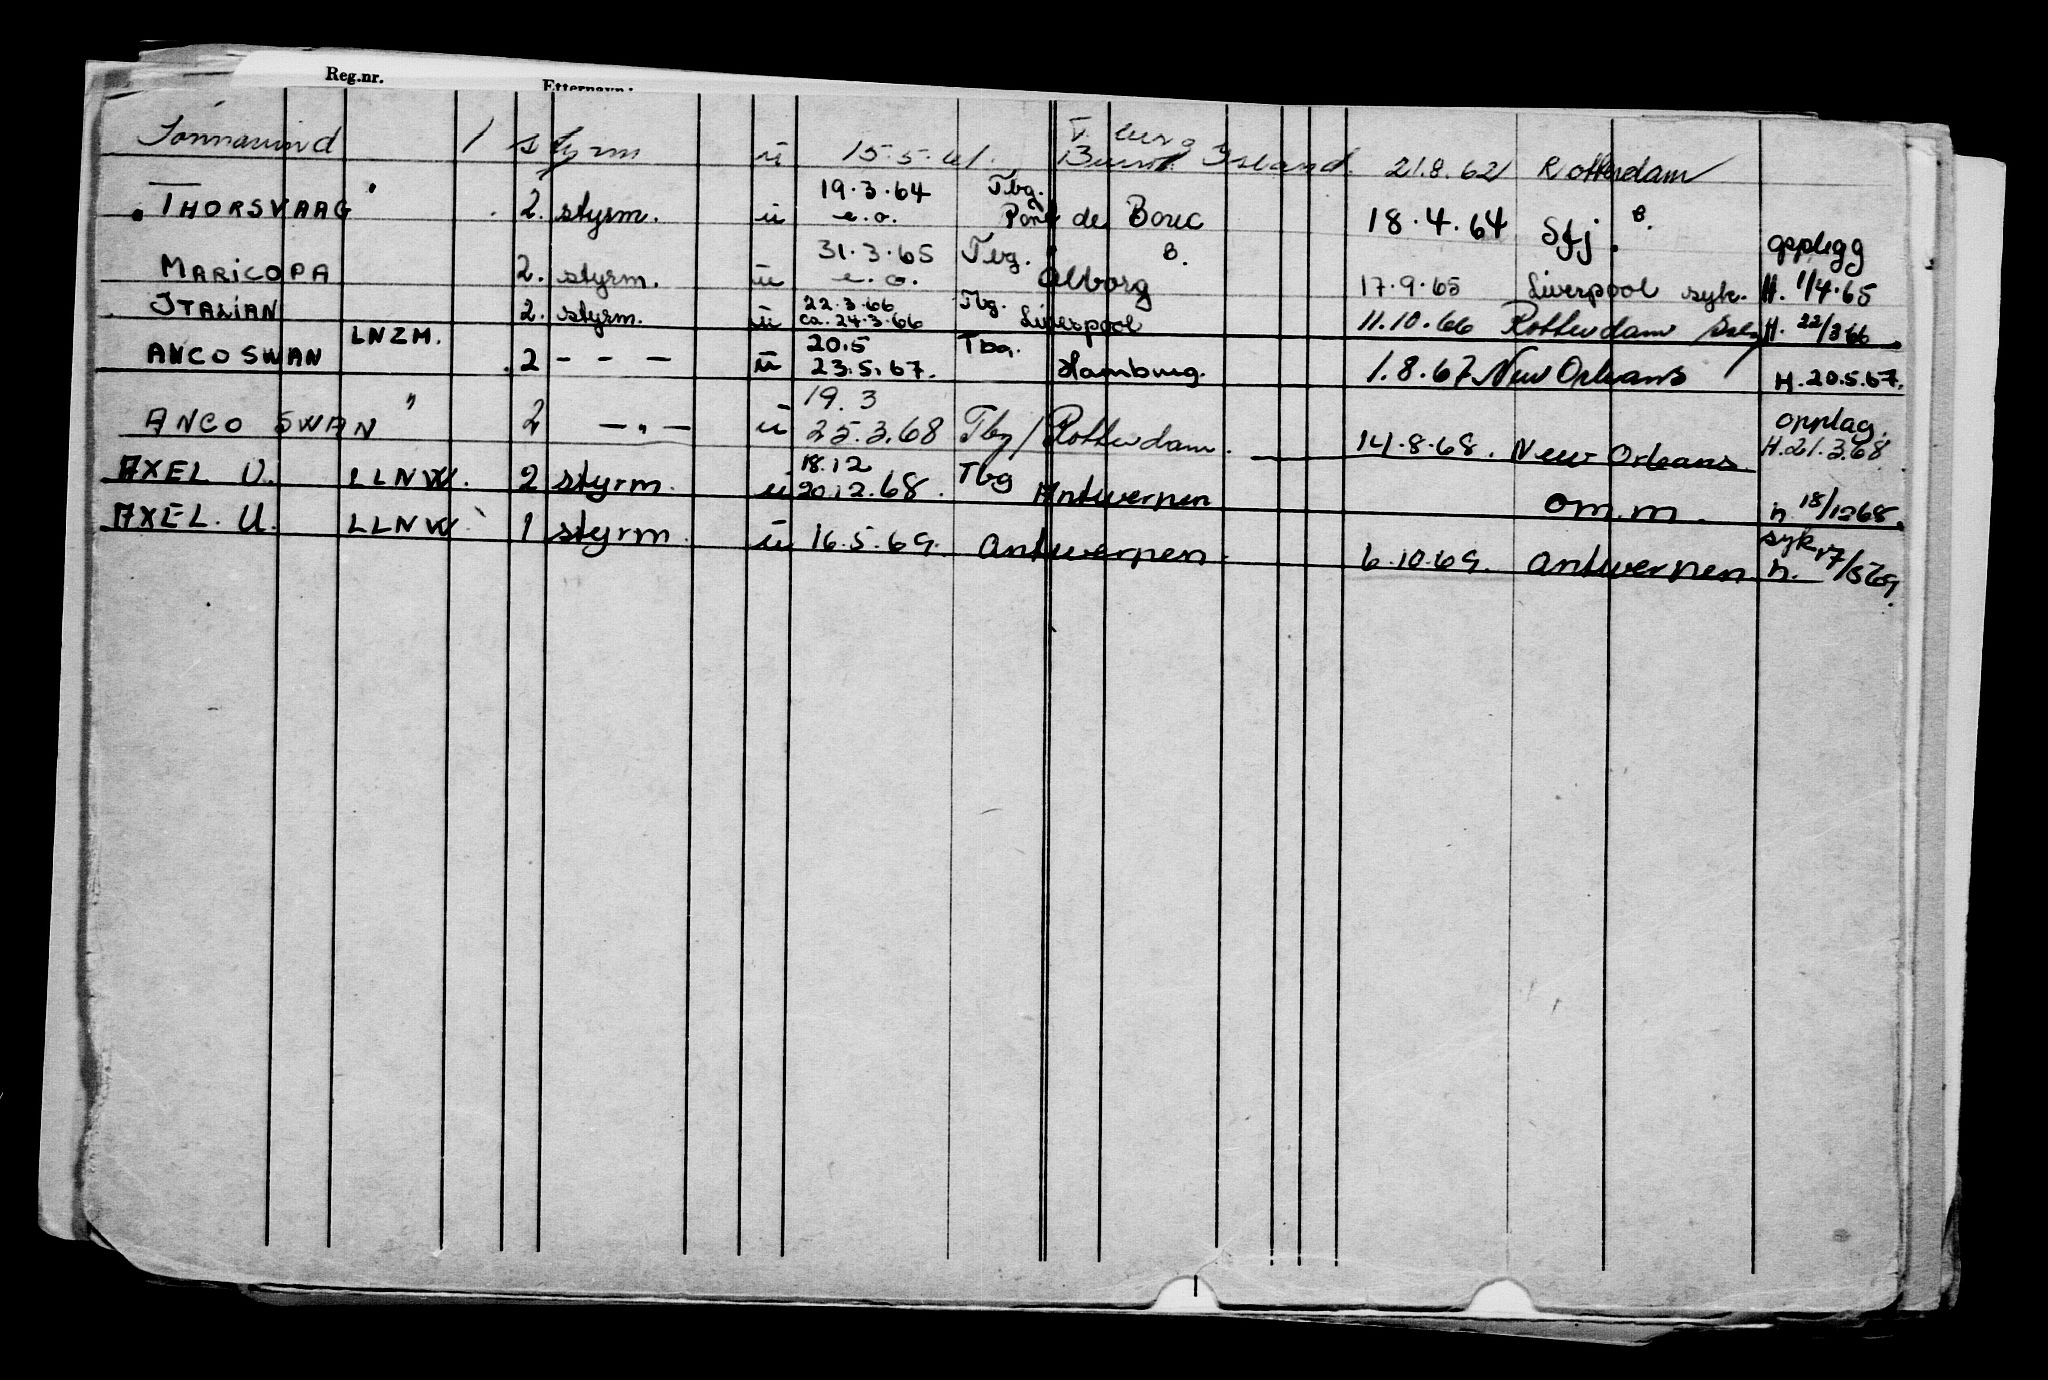 Reg.nr. Etternavn:
1 styrm ü 15.5.61. Island. 21.8.62 Rotterdam
THORSVAAG " 2. styrm. ü 19.3.64 e.o. Tbg. Port de Bouc 18.4.64 Sfj. B.
MARICOPA 2. styrm. ü 31.3.65 e.o. Tbg. B. Alborg 17.9.65 Liverpool syk. H. 1/4.65
ITALIAN 2. styrm. ü 22.3.66 ca. 24.3.66 Tbg. Liverpool 11.10.66 Rotterdam H. 22/3 66
ANCO SWAN LNZM. 2 - - - ü 20.5 23.5.67. Tbg. Hamburg. 1.8.67 New Orleans H. 20.5.67.
ANCO SWAN " 2 — " — ü 19.3 25.3.68 Tbg / Rotterdam. 14.8.68. New Orleans. opplag. H. 21.3.68
AXEL U. LLNW. 2 styrm. ü 18.12 20.12.68. Tbg Antwerpen om.m. h. 18/12 68.
AXEL. U. LLNW. 1 styrm. ü 16.5.69. Antwerpen. 6.10.69. Antwerpen syk h. 17/5 69.